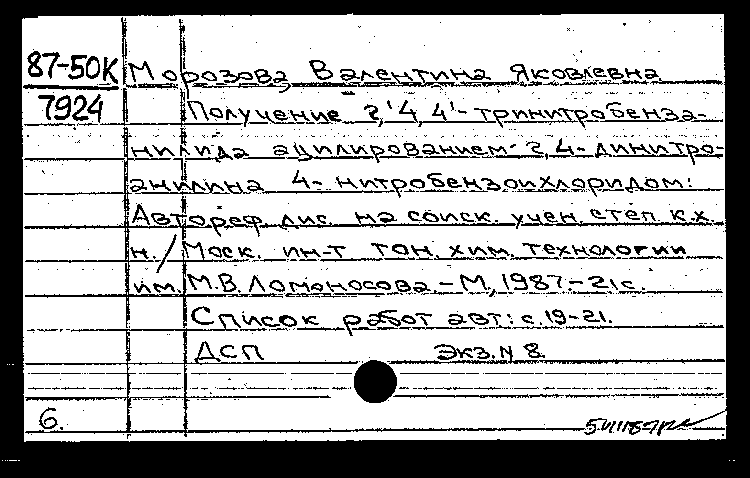 87-50К Морозова, Валентина Яковлевна
7924 Получение 2,'4,4'-тринитробенза-
нилида ацилированием 2,4-динитро-
анилина 4-нитробензоилхлоридом:
Автореф. дис. на соиск. учен. степ. к.х.
н./Моск. ин-т тон. хим. технологии
им. М.В. Ломоносова - М, 1987 - 21 с.
Список работ авт: с. 19-21.
ДСП Экз. N 8.
6.